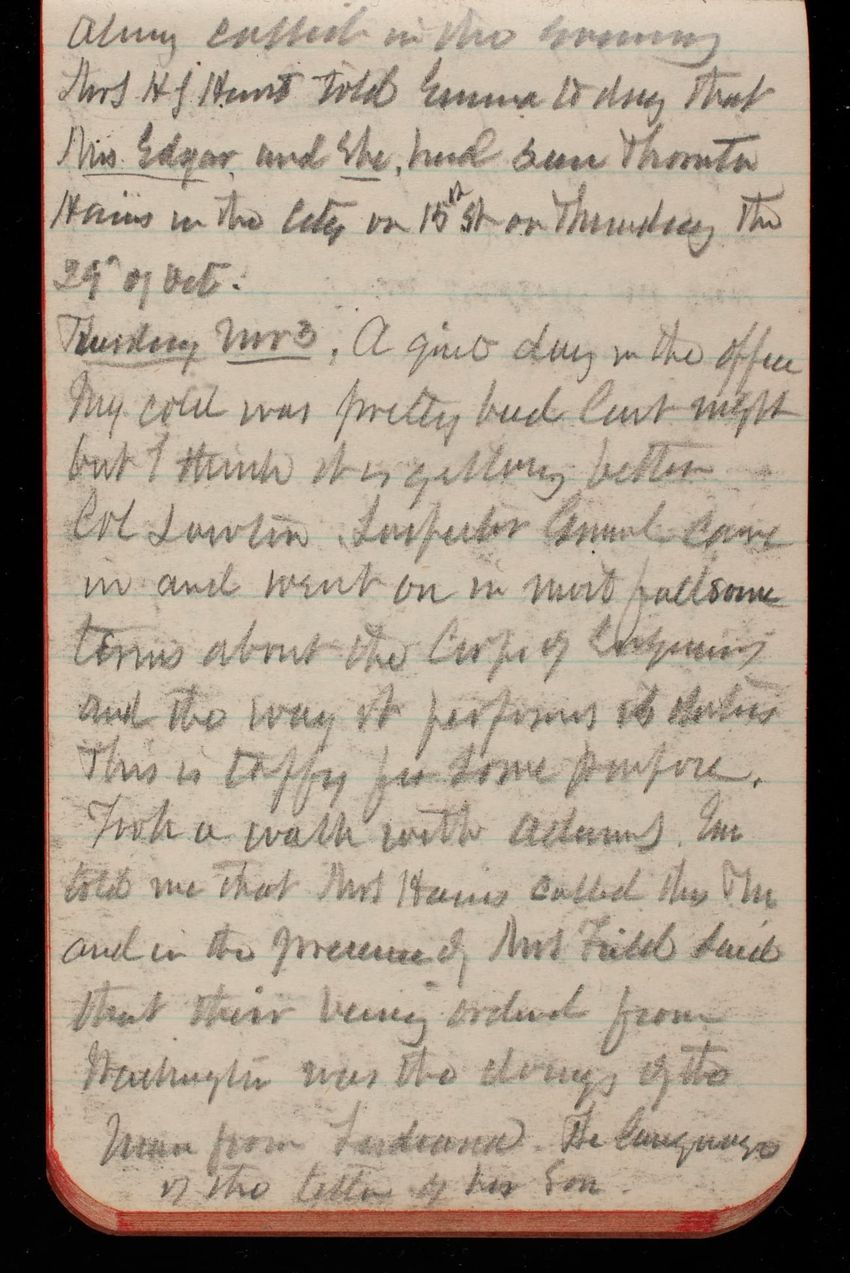 called in the evening
Mrs H J Hunt told Emma to day that
Mrs. Edgar, and She, had seen Thornton
Hains in the City on 15th St on Thursday the
29" of Oct.
Tuesday Nov 3, A quiet day in the office
My cold was pretty bad last night
but I think it is getting better
Col Lawton Inspector General came
in and went on in most fullsome
terms about the Corps of Engineers
and the way it performs its duties
This is taffy for some purpose.
Took a walk with Adams.
told me that Mrs Hains called this
and in the presence of Mrs Field said
that their being ordered from
Washington was the doings of the
Man from Indiana. The language
of the letter of her Son.